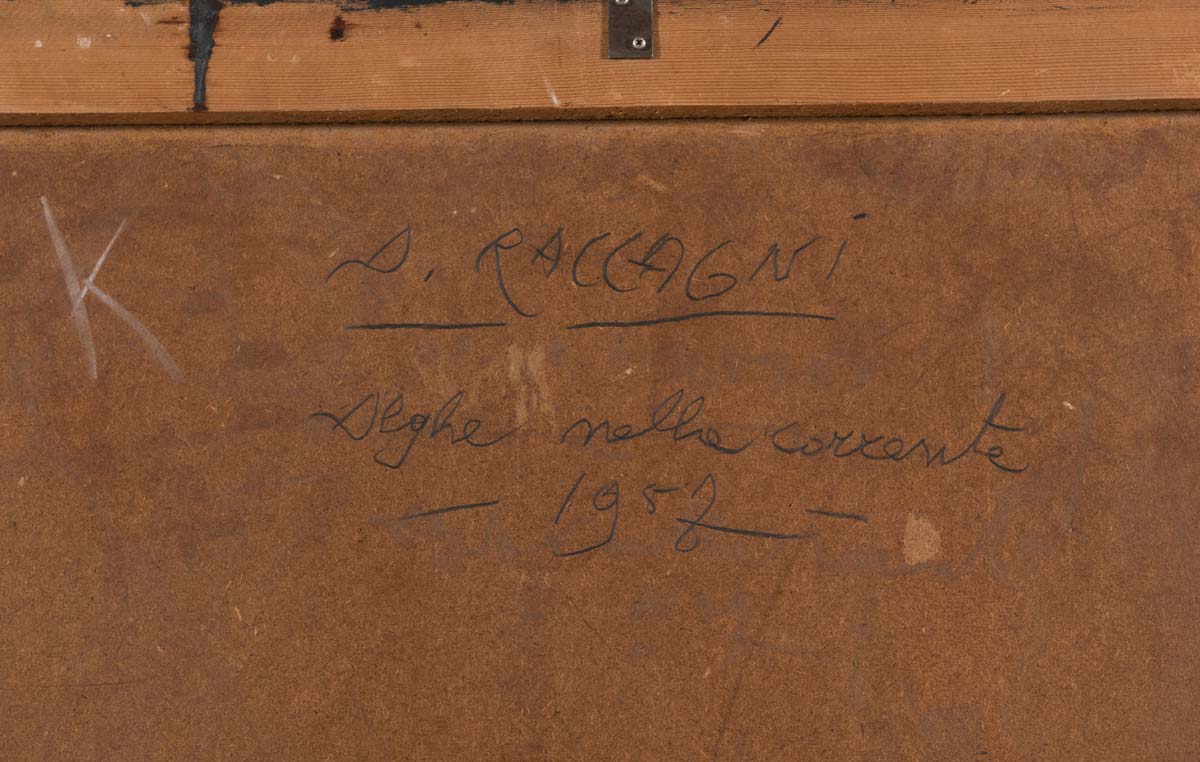 K
A. RACCAGNI
Alghe nella corrente
— 1957 —